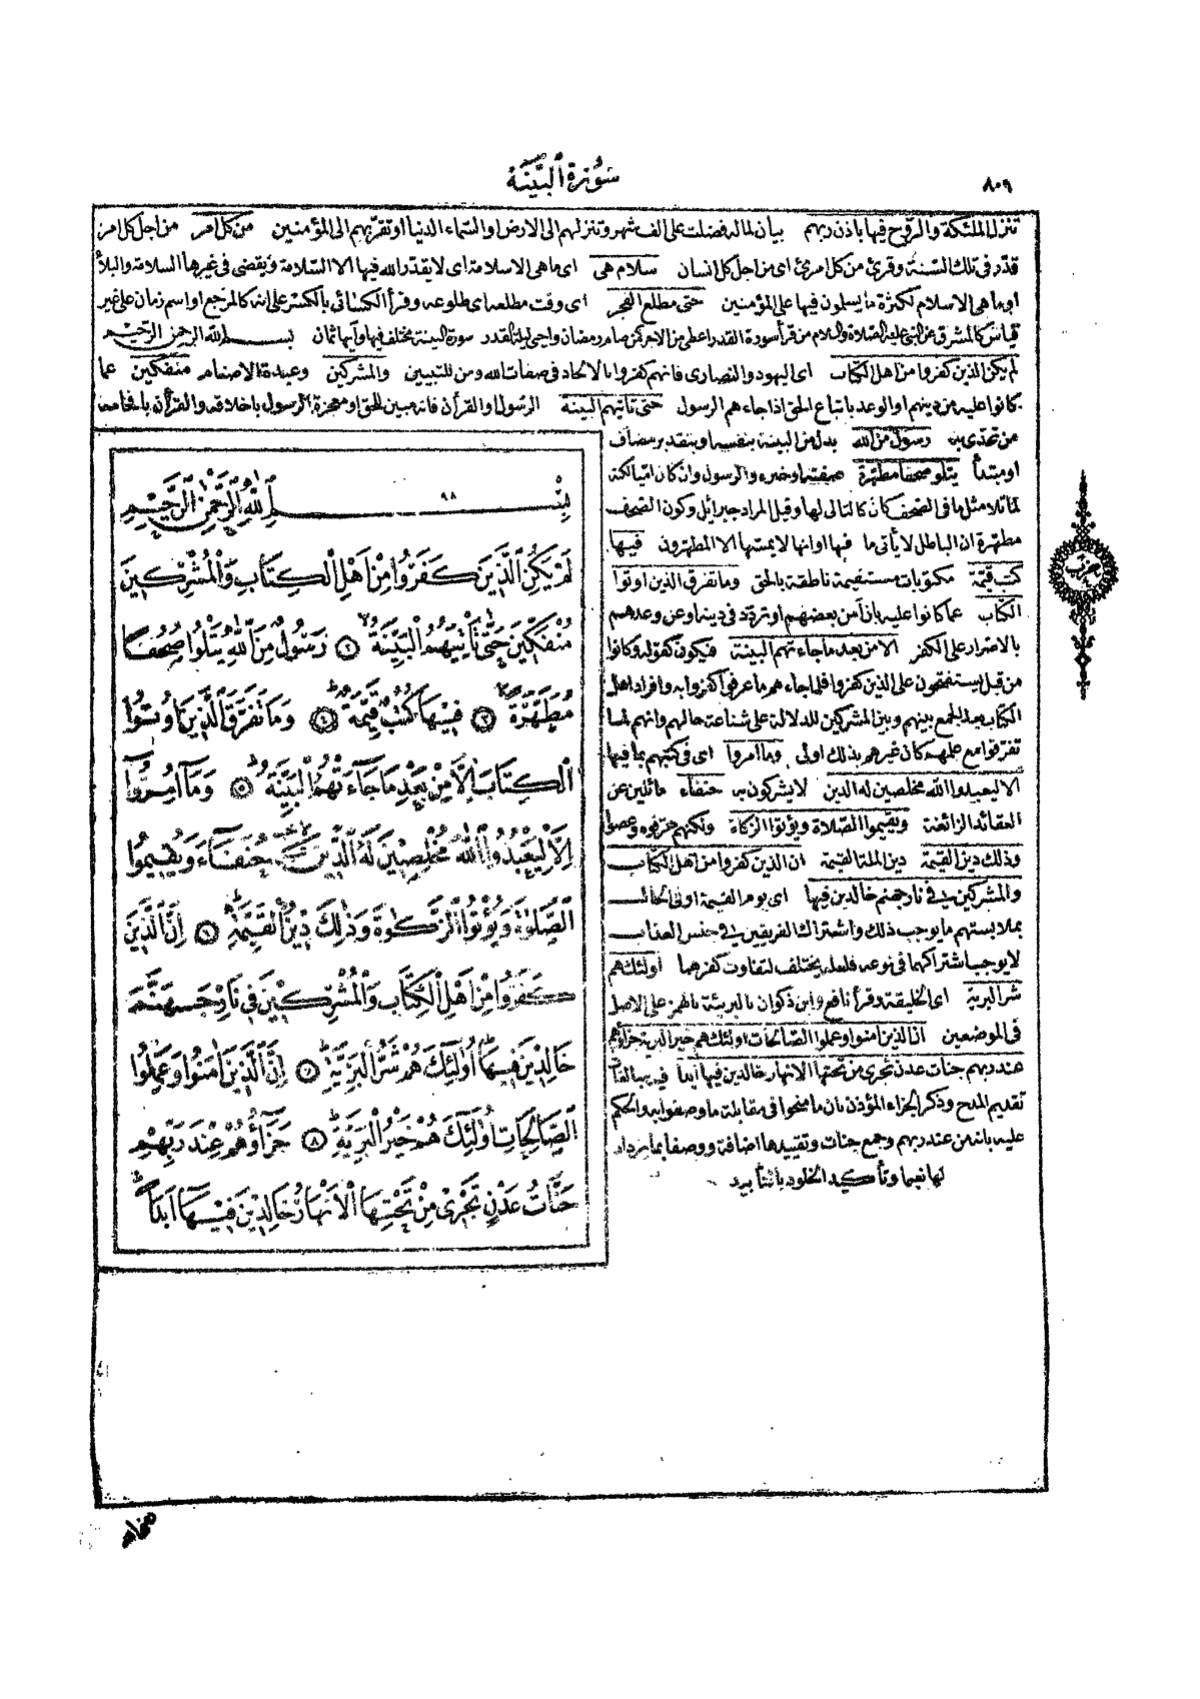 ٨٠٩
سورة البينة
تنزل الملئكة والروح فيها باذن ربهم بيان لما له فضلت على الف شهر وتنزلهم الى الارض او السماء الدنيا او تقربهم الى المؤمنين من كل امر من اجل كل امر
قدر فى تلك السنة وقرئ من كل امرئ اى من اجل كل انسان سلام هى اى ما هى الا سلامة اى لا يقدر الله فيها الا السلامة ويقضى فى غيرها السلامة والبلاء
او ما هى الا سلام لكثرة ما يسلمون فيها على المؤمنين حتى مطلع الفجر اى وقت مطلعه اى طلوعه وقرأ الكسائى بالكسر على انه كالمرجع او اسم زمان على غير
قياس كالمشرق عن النبى عليه الصلاة والسلام من قرأ سورة القدر اعطى من الاجر كمن صام رمضان واحيى ليلة القدر سورة البينة مختلف فيها وآيها ثمان بسم الله الرحمن الرحيم
لم يكن الذين كفروا من اهل الكتاب اى اليهود والنصارى فانهم كفروا بالالحاد فى صفات الله ومن للتبيين والمشركين وعبدة الاصنام منفكين عما
كانوا عليه من دينهم او الوعد باتباع الحق اذا جاءهم الرسول حتى تاتيهم البينة الرسول او القرأن فانه مبين للحق او معجزة الرسول باخلاقه والقرأن بافحامه
من تحدى به رسول من الله بدل من البينة بنفسه او بتقدير مضاف
او مبتدأ يتلو صحفا مطهرة صفته او خبره والرسول وان كان اميا لكنه
لما تلا مثل ما فى الصحف كان كالتالى لها وقيل المراد جبرائيل وكون الصحف
مطهرة ان الباطل لا يأتى ما فيها او انها لا يمسها الا المطهرون فيها
كتب قيمة مكتوبات مستقيمة ناطقة بالحق وما تفرق الذين اوتوا
الكتاب عما كانوا عليه بان آمن بعضهم او تردد فى دينه او عن وعدهم
بالاصرار على الكفر الا من بعد ما جاءتهم البينة فيكون كقوله وكانوا
من قبل يستفتحون على الذين كفروا فلما جاءهم ما عرفوا كفروا به وافراد اهل
الكتاب بعد الجمع بينهم وبين المشركين للدلالة على شناعة حالهم وانهم لما
تفرقوا مع علمهم كان غيرهم بذلك اولى وما امروا اى فى كتبهم بما فيها
الا ليعبدوا الله مخلصين له الدين لا يشركون به حنفاء مائلين عن
العقائد الزائغة ويقيموا الصلاة ويؤتوا الزكاة ولكنهم حرفوه وعصوا
وذلك دين القيمة دين الملة القيمة ان الذين كفروا من اهل الكتاب
والمشركين فى نار جهنم خالدين فيها اى يوم القيمة او فى الحال
بملابستهم ما يوجب ذلك واشتراك الفريقين فى جنس العذاب
لا يوجب اشتراكهما فى نوعه فلعله يختلف لتفاوت كفرهما اولئك هم
شر البرية اى الخليقة وقرأ نافع وابن ذكوان بالبريئة بالهمز على الاصل
فى الموضعين ان الذين امنوا وعملوا الصالحات اولئك هم خير البرية جزاؤهم
عند ربهم جنات عدن تجرى من تحتها الانهار خالدين فيها ابدا فيه مبالغات
تقديم المدح وذكر الجزاء المؤذن بان ما منحوا فى مقابلة ما وصفوا به والحكم
عليه بانه من عند ربهم وجمع جنات وتقييدها اضافة ووصفا بما يزداد
لها نعيما وتأكيد الخلود بالتأبيد
٩٨
بِسْمِ اللّٰهِ الرَّحْمٰنِ الرَّحِيمِ
لَمْ يَكُنِ الَّذِينَ كَفَرُوا مِنْ اَهْلِ الْكِتَابِ وَالْمُشْرِكِينَ
مُنْفَكِّينَ حَتّٰى تَأْتِيَهُمُ الْبَيِّنَةُ ١ رَسُولٌ مِنَ اللّٰهِ يَتْلُوا صُحُفًا
مُطَهَّرَةً ٢ فِيهَا كُتُبٌ قَيِّمَةٌ ٤ وَمَا تَفَرَّقَ الَّذِينَ اُوتُوا
الْكِتَابَ اِلَّا مِنْ بَعْدِ مَا جَاءَتْهُمُ الْبَيِّنَةُ ٥ وَمَا اُمِرُوا
اِلَّا لِيَعْبُدُوا اللّٰهَ مُخْلِصِينَ لَهُ الدِّينَ حُنَفَاءَ وَيُقِيمُوا
الصَّلٰوةَ وَيُؤْتُوا الزَّكٰوةَ وَذٰلِكَ دِينُ الْقَيِّمَةِ ٦ اِنَّ الَّذِينَ
كَفَرُوا مِنْ اَهْلِ الْكِتَابِ وَالْمُشْرِكِينَ فِي نَارِ جَهَنَّمَ
خَالِدِينَ فِيهَا اُولٰئِكَ هُمْ شَرُّ الْبَرِيَّةِ ٧ اِنَّ الَّذِينَ اٰمَنُوا وَعَمِلُوا
الصَّالِحَاتِ اُولٰئِكَ هُمْ خَيْرُ الْبَرِيَّةِ ٨ جَزَاؤُهُمْ عِنْدَ رَبِّهِمْ
جَنَّاتُ عَدْنٍ تَجْرِي مِنْ تَحْتِهَا الْاَنْهَارُ خَالِدِينَ فِيهَا اَبَدًا
حزب